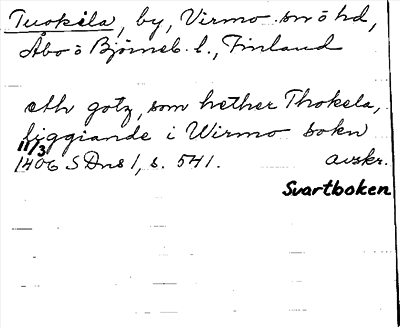 Tuokila, by, Virmo sn o hd,
Åbo o Björneb. l., Finland
eth gotz, som hether Thokela,
liggiande i Wirmo sokn
11/3
1406 SDns 1, s. 541. avskr.
Svartboken